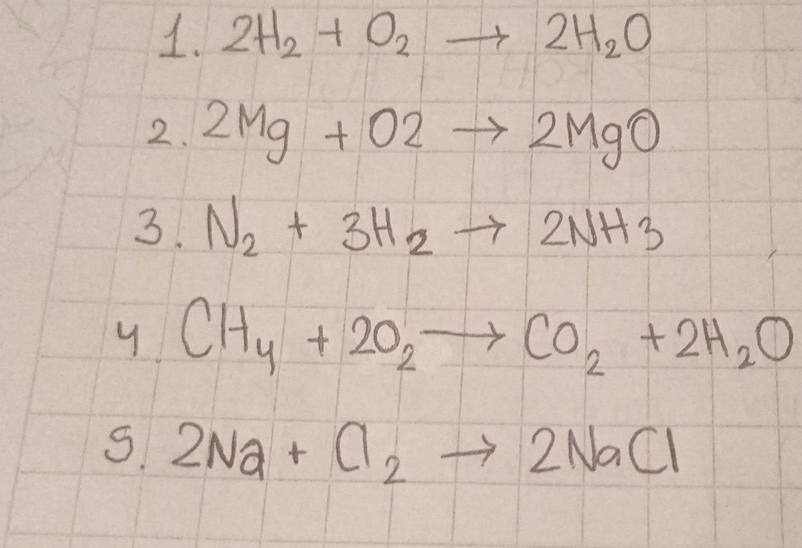 1. 2H₂ + O₂ → 2H₂O
2. 2Mg + O2 → 2MgO
3. N₂ + 3H₂ → 2NH3
4. CH₄ + 2O₂ → CO₂ + 2H₂O
5. 2Na + Cl₂ → 2NaCl